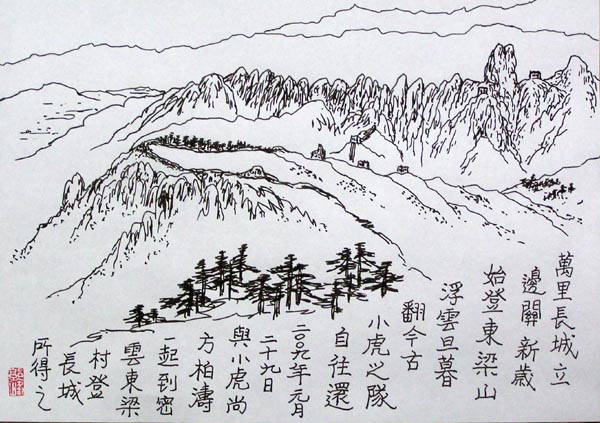 萬里長城立
邊關新歲
始登東梁山
浮雲旦暮
翻今古
小虎之隊
自往還
二〇〇九年元月
二十九日
與小虎尚
方柏濤
一起到密
雲東梁
村登
長城
所得之